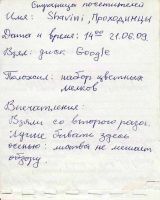 Страница посетителей
Имя: Shavini, Проходимцы
Дата и время: 14⁰⁰ 21.06.09.
Взял: диск Google
Положил: набор цветных
мелков
Впечатления:
Взяли со второго раза.
Лучше бывать здесь
осенью: листва не мешает
обзору.